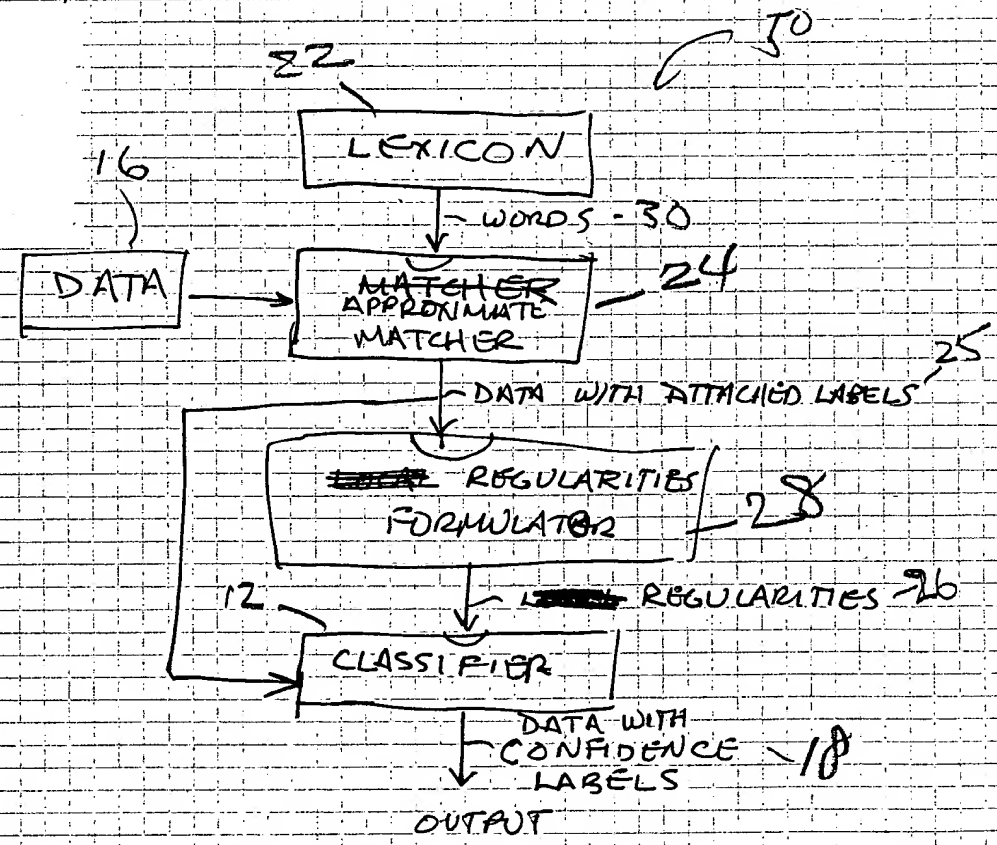 50
22
LEXICON
16
WORDS - 30
DATA
MATCHER
24
APPROXIMATE
MATCHER
25
DATA WITH ATTACHED LABELS
LOCAL REGULARITIES
28
FORMULATOR
12
REGULARITIES 26
CLASSIFIER
DATA WITH
CONFIDENCE 18
LABELS
OUTPUT